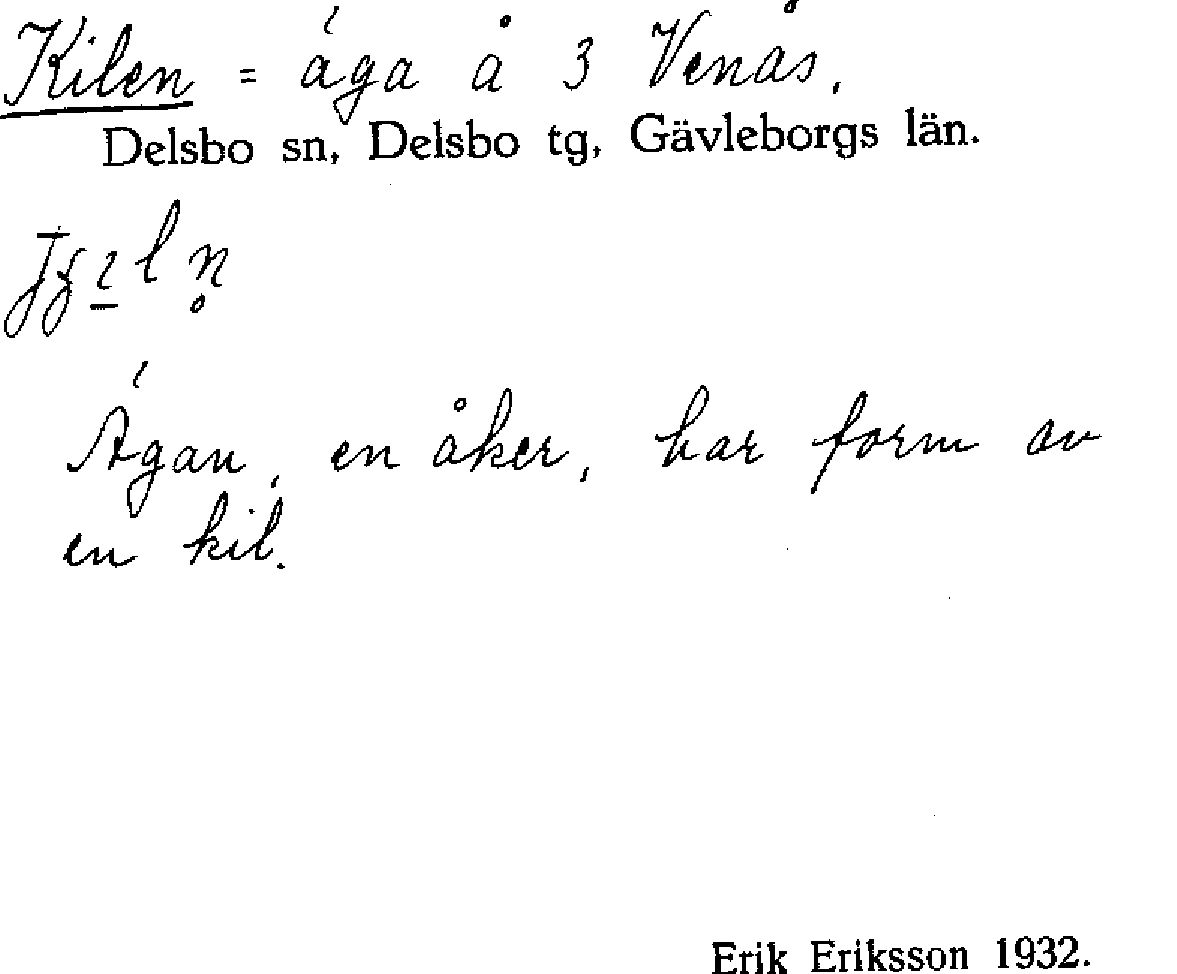 Kilen = ága å 3 Venås.
Delsbo sn, Delsbo tg, Gävleborgs län.
Ágan, en åker, har form av
en kil.
Erik Eriksson 1932.